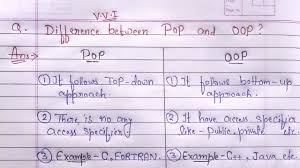 V.V.I
Q. Difference between POP and OOP?
Ans→ POP OOP
① It follows Top-down It follows bottom-up
approach. approach.
② There is no any ② It have access specifier
access specifier like-Public, private etc.
③ Example-C, FORTRAN. ③ Example-C++, Java etc.